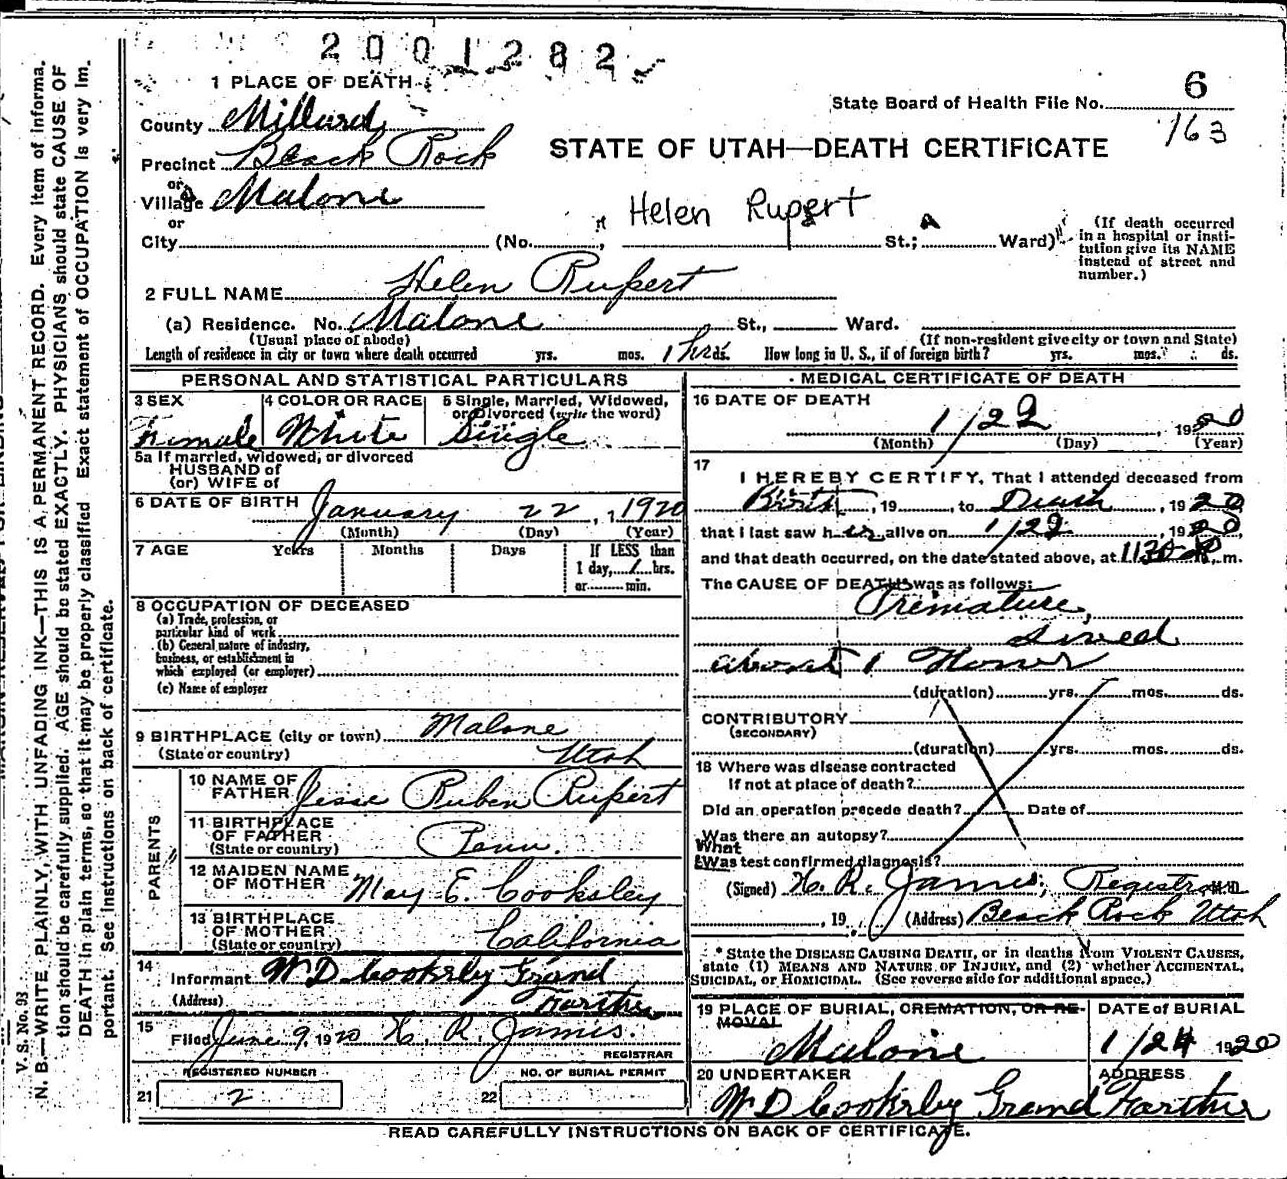 2001282
1 PLACE OF DEATH
State Board of Health File No. 6
163
County Millard
Precinct Black Rock
STATE OF UTAH—DEATH CERTIFICATE
or
Village Malone
Helen Rupert
or
City (No. St.; Ward)
(If death occurred
in a hospital or insti-
tution give its NAME
instead of street and
number.)
2 FULL NAME Helen Rupert
(a) Residence. No. Malone St., Ward.
(Usual place of abode) (If non-resident give city or town and State)
Length of residence in city or town where death occurred yrs. mos. 1 hrs. ds. How long in U. S., if of foreign birth? yrs. mos. ds.
PERSONAL AND STATISTICAL PARTICULARS
3 SEX 4 COLOR OR RACE 5 Single, Married, Widowed,
or Divorced (write the word)
Female White Single
5a If married, widowed, or divorced
HUSBAND of
(or) WIFE of
6 DATE OF BIRTH January 22, 1920
(Month) (Day) (Year)
7 AGE Years Months Days If LESS than
1 day, 1 hrs.
or min.
8 OCCUPATION OF DECEASED
(a) Trade, profession, or
particular kind of work
(b) General nature of industry,
business, or establishment in
which employed (or employer)
(c) Name of employer
9 BIRTHPLACE (city or town) Malone
(State or country) Utah
PARENTS
10 NAME OF
FATHER Jesse Ruben Rupert
11 BIRTHPLACE
OF FATHER
(State or country) Penn.
12 MAIDEN NAME
OF MOTHER May E. Cooksley
13 BIRTHPLACE
OF MOTHER
(State or country) California
14
Informant W D Cooksley Grand
(Address) Farther
15
Filed June 9, 1920 H. R. James.
REGISTRAR
REGISTERED NUMBER NO. OF BURIAL PERMIT
21 2 22
MEDICAL CERTIFICATE OF DEATH
16 DATE OF DEATH
1/22, 1920
(Month) (Day) (Year)
17
I HEREBY CERTIFY, That I attended deceased from
Birth, 19, to Death, 1920
that I last saw her alive on 1/22, 1920,
and that death occurred, on the date stated above, at 1130 m.
The CAUSE OF DEATH* was as follows:
Premature,
Lived
about 1 Hour
(duration) yrs. mos. ds.
CONTRIBUTORY
(SECONDARY)
(duration) yrs. mos. ds.
18 Where was disease contracted
If not at place of death?
Did an operation precede death? Date of
Was there an autopsy?
What
Was test confirmed diagnosis?
(Signed) H. R. James, Registrar M.D.
, 19 (Address) Black Rock Utah
* State the DISEASE CAUSING DEATH, or in deaths from VIOLENT CAUSES,
state (1) MEANS AND NATURE OF INJURY, and (2) whether ACCIDENTAL,
SUICIDAL, or HOMICIDAL. (See reverse side for additional space.)
19 PLACE OF BURIAL, CREMATION, OR RE-
MOVAL
DATE of BURIAL
Malone 1/24 1920
20 UNDERTAKER ADDRESS
W D Cooksley Grand Farther
READ CAREFULLY INSTRUCTIONS ON BACK OF CERTIFICATE.
V. S. No. 93
N. B.—WRITE PLAINLY, WITH UNFADING INK—THIS IS A PERMANENT RECORD. Every item of informa-
tion should be carefully supplied. AGE should be stated EXACTLY. PHYSICIANS should state CAUSE OF
DEATH in plain terms, so that it may be properly classified. Exact statement of OCCUPATION is very im-
portant. See instructions on back of certificate.